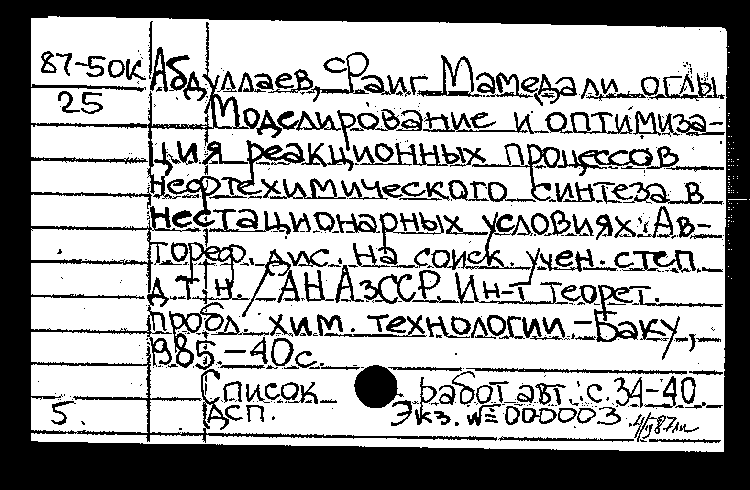 87-50к Абдуллаев, Фаиг Мамедали оглы
25 Моделирование и оптимиза-
ция реакционных процессов
нефтехимического синтеза в
нестационарных условиях: Ав-
тореф. дис. на соиск. учен. степ.
д.т.н. / АН АзССР. Ин-т теорет.
пробл. хим. технологии. - Баку,
1985. - 40с.
Список работ авт.: с. 34-40.
5. ДСП. Экз. № 000003